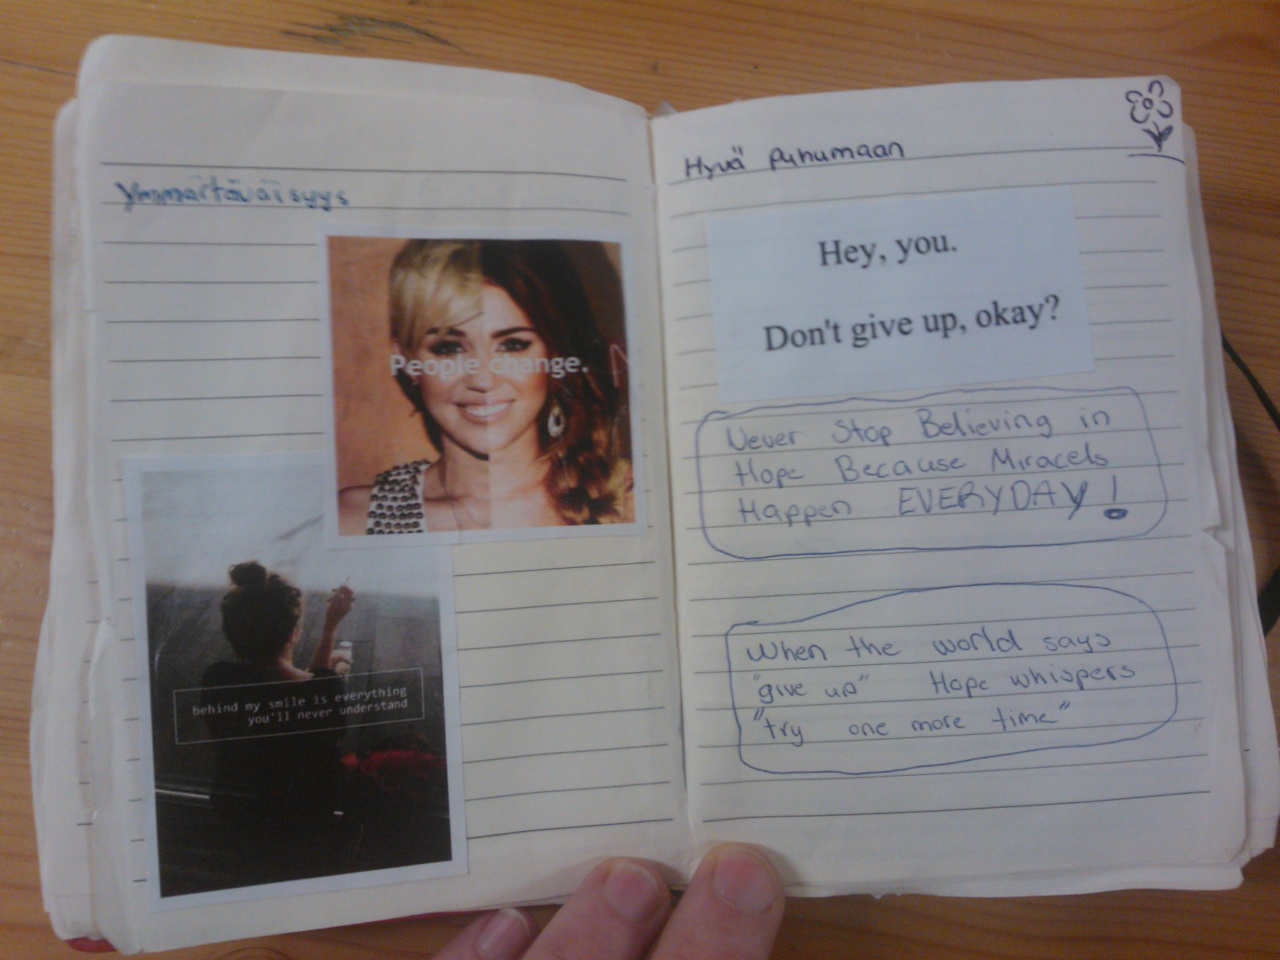 Ymmärtäväisyys
People change.
behind my smile is everything
you'll never understand
Hyvä puhumaan
Hey, you.
Don't give up, okay?
Never Stop Believing in
Hope Because Miracels
Happen EVERYDAY!
When the world says
"give up" Hope whispers
"try one more time"